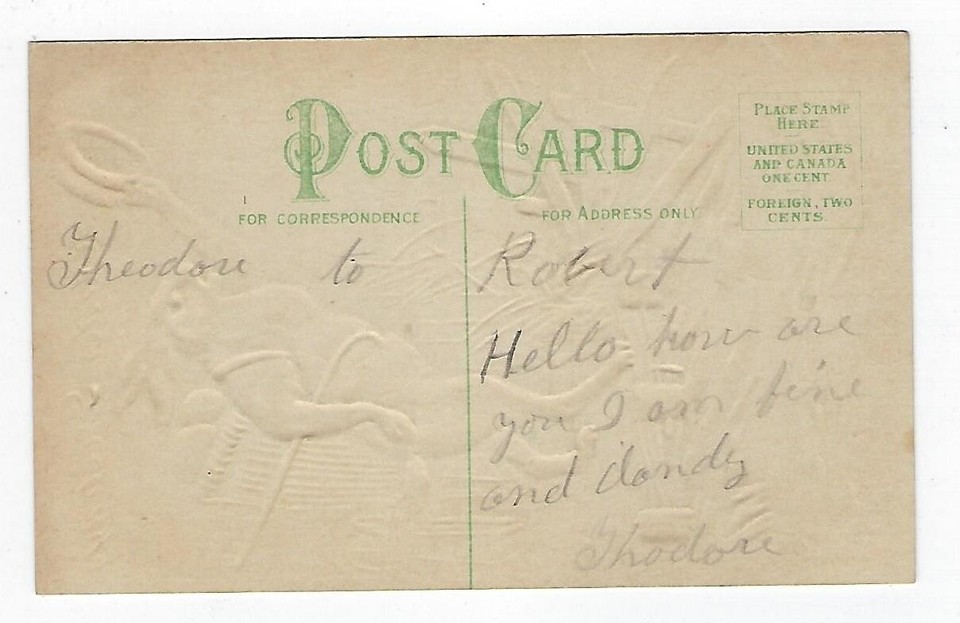 POST CARD
PLACE STAMP
HERE
UNITED STATES
AND CANADA
ONE CENT
FOREIGN, TWO
CENTS.
FOR CORRESPONDENCE
FOR ADDRESS ONLY
Theodore to Robert
Hello how are
you I am fine
and dandy
Thodore